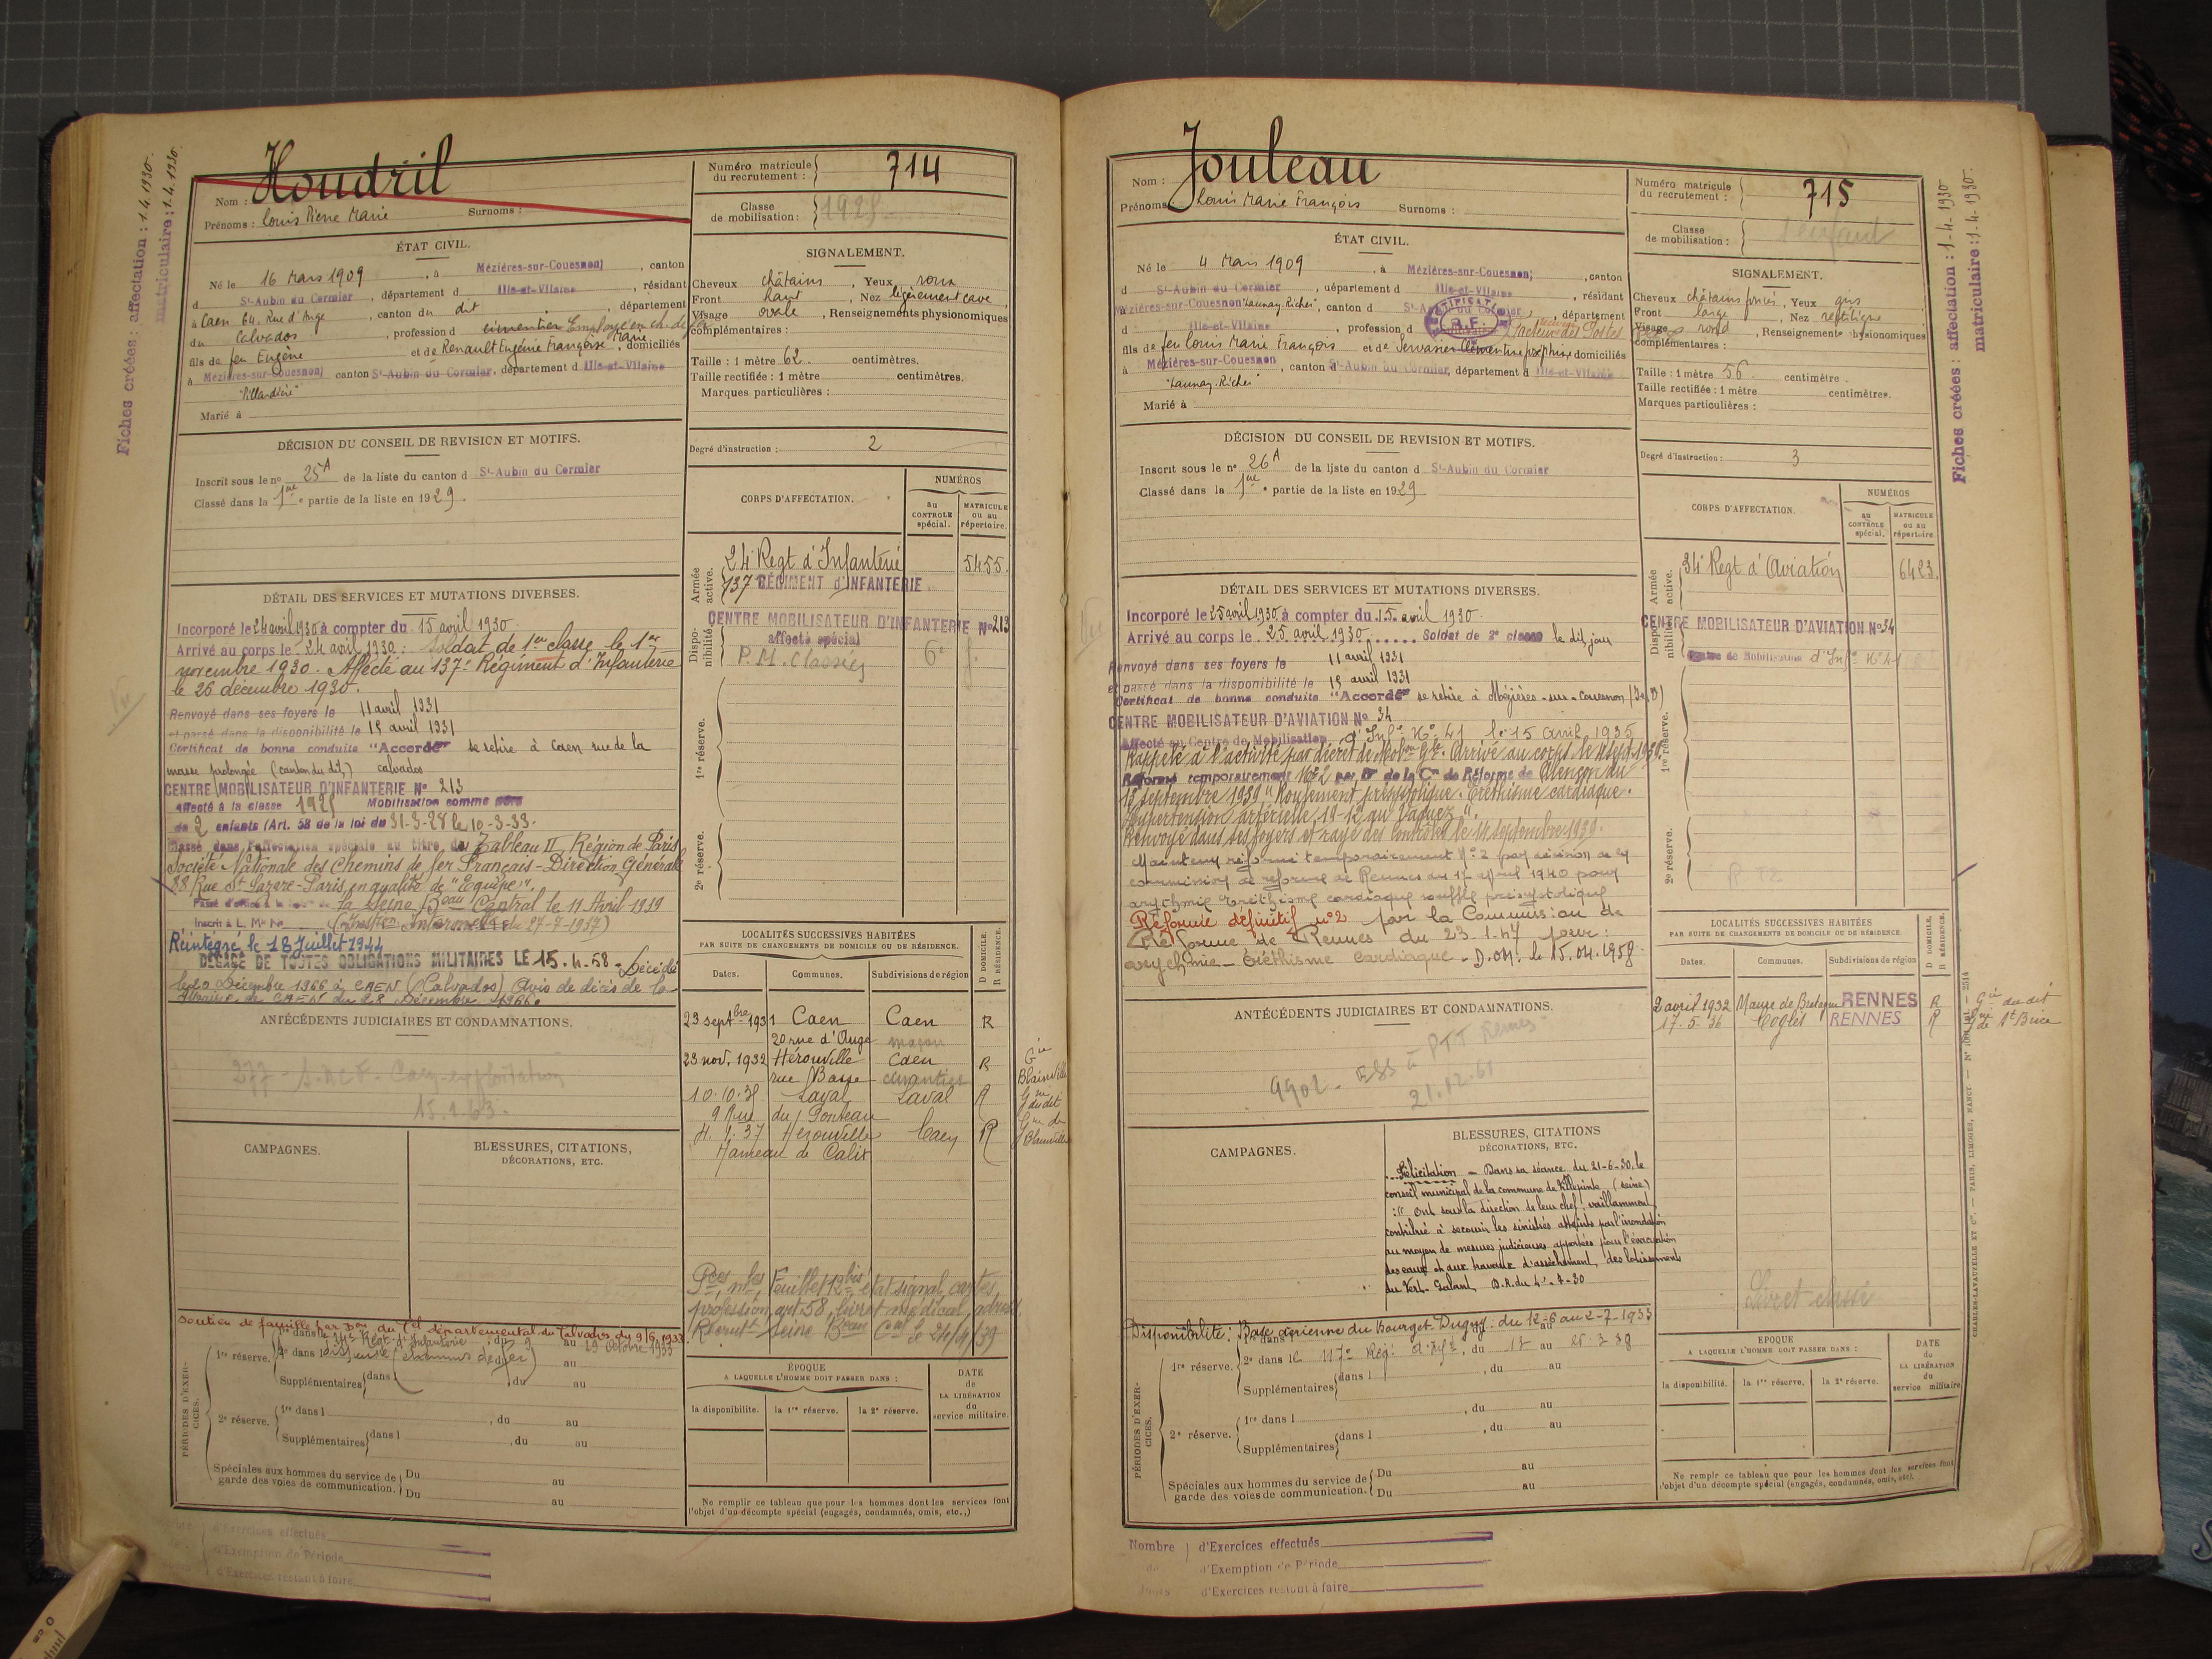 Fiches créées : affectation : 1.4.1930.
matriculaire : 1.4.1930.
Nom : Houdril
Prénoms : Louis Pierre Marie Surnoms :
Numéro matricule du recrutement : 714
Classe de mobilisation : 1925
ÉTAT CIVIL.
Né le 16 Mars 1909, à Mézières-sur-Couesnon, canton
d St-Aubin du Cormier, département d Ille-et-Vilaine, résidant
à Caen 64, Rue d'Auge, canton du dit, département
du Calvados, profession d cimentier Employé en ch. de fer
fils de feu Eugène et de Renault Eugénie Françoise Marie, domiciliés
à Mézières-sur-Couesnon, canton St-Aubin du Cormier, département d Ille-et-Vilaine
Marié à
SIGNALEMENT.
Cheveux châtains, Yeux roux
Front haut, Nez légèrement cave,
Visage ovale, Renseignements physionomiques
complémentaires :
Taille : 1 mètre 62 centimètres.
Taille rectifiée : 1 mètre centimètres.
Marques particulières :
Degré d'instruction : 2
DÉCISION DU CONSEIL DE REVISION ET MOTIFS.
Inscrit sous le no 25A de la liste du canton d St-Aubin du Cormier
Classé dans la 1re partie de la liste en 1929.
CORPS D'AFFECTATION.
NUMÉROS
au CONTROLE spécial.
MATRICULE ou au répertoire.
Armée active.
24e Regt d'Infanterie 5455.
137e RÉGIMENT d'INFANTERIE
Disponibilité
CENTRE MOBILISATEUR D'INFANTERIE No 213
affecté spécial
1re réserve.
2e réserve.
DÉTAIL DES SERVICES ET MUTATIONS DIVERSES.
Incorporé le 24 avril 1930 à compter du 15 avril 1930.
Arrivé au corps le 24 avril 1930. Soldat de 1ere classe le 1er
novembre 1930. Affecté au 137e Régiment d'Infanterie
le 26 décembre 1930.
Renvoyé dans ses foyers le 11 avril 1931
et passé dans la disponibilité le 15 avril 1931
Certificat de bonne conduite "Accordé" se retire à Caen rue de la
masse prolongée (canton du dit) calvados
CENTRE MOBILISATEUR D'INFANTERIE No 213
Affecté à la classe 1925 Mobilisation comme père
de 2 enfants (Art. 58 de la loi du 31-3-28 le 10-3-33.
Classé dans l'affectation spéciale au titre du Tableau II Région de Paris
Société Nationale des Chemins de fer Français - Direction Générale
88 Rue St Lazare - Paris, en qualité de "Equipe".
la Seine Beau Central le 11 Avril 1939
Réintégré le 18 Juillet 1944
DÉGAGÉ DE TOUTES OBLIGATIONS MILITAIRES LE 15.4.58 - Décédé
le 20 Décembre 1966 à CAEN (Calvados) Avis de décès de la
Mairie de CAEN du 28 Décembre 1966.
ANTÉCÉDENTS JUDICIAIRES ET CONDAMNATIONS.
277 - S.N.C.F. - Caen-exploitation
15.1.63.
LOCALITÉS SUCCESSIVES HABITÉES
PAR SUITE DE CHANGEMENTS DE DOMICILE OU DE RÉSIDENCE.
Dates. Communes. Subdivisions de région D DOMICILE. R RÉSIDENCE.
23 septbre 1931 Caen Caen R
20 rue d'Auge
23 nov. 1932 Hérouville Caen R
rue Basse
Gie Blainville
10.10.35 Laval Laval R
9 Rue du Ponteau
Gie du dit
4.1.37 Hérouville Caen R
Hameau de Calix
Gie de Blainville
CAMPAGNES.
BLESSURES, CITATIONS, DÉCORATIONS, ETC.
Pces mles, Feuillet 12bis, état signal, cartes,
profession, art 58, livret médical, adressés
Recrutt Seine Beau Cal le 24/4/39
Soutien de famille par Don du Cel départemental du Calvados du 9/6, 1933
PÉRIODES D'EXERCICES.
1re réserve.
Supplémentaires dans l , du au
2e réserve. 1re dans l , du au
Supplémentaires dans l , du au
Spéciales aux hommes du service de garde des voies de communication. Du au
Du au
ÉPOQUE
A LAQUELLE L'HOMME DOIT PASSER DANS :
la disponibilité. la 1re réserve. la 2e réserve.
DATE de LA LIBÉRATION du service militaire.
Ne remplir ce tableau que pour les hommes dont les services font
l'objet d'un décompte spécial (engagés, condamnés, omis, etc.,)
d'Exercices effectués
d'Exemption de Période
d'Exercices restant à faire
Nom : Jouleau
Prénoms Louis Marie François Surnoms :
Numéro matricule du recrutement : 715
Classe de mobilisation :
ÉTAT CIVIL.
Né le 4 Mars 1909, à Mézières-sur-Couesnon, canton
d St-Aubin du Cormier, département d Ille-et-Vilaine, résidant
Mézières-sur-Couesnon "Launay-Richer", canton d St-Aubin du Cormier, département
d Ille-et-Vilaine, profession d Facteur des Postes
RECTIFICATION R.F.
fils de feu Louis Marie François et de Servasier Clémentine Joséphine domiciliés
à Mézières-sur-Couesnon, canton d St-Aubin du Cormier, département d Ille-et-Vilaine
"Launay-Richer"
Marié à
SIGNALEMENT.
Cheveux châtains foncés, Yeux gris
Front large, Nez rectiligne
Visage rond, Renseignements physionomiques
complémentaires :
Taille : 1 mètre 56 centimètre.
Taille rectifiée : 1 mètre centimètres.
Marques particulières :
Degré d'instruction : 3
Fiches créées : affectation : 1-4-1930
matriculaire : 1-4-1930.
DÉCISION DU CONSEIL DE REVISION ET MOTIFS.
Inscrit sous le no 26A de la liste du canton d St-Aubin du Cormier
Classé dans la 1re partie de la liste en 1929
CORPS D'AFFECTATION.
NUMÉROS
au CONTROLE spécial.
MATRICULE ou au répertoire.
Armée active.
34e Regt d'Aviation 6423.
Disponibilité
CENTRE MOBILISATEUR D'AVIATION No 34
Centre de Mobilisation d'Infie No 41
1re réserve.
2e réserve.
DÉTAIL DES SERVICES ET MUTATIONS DIVERSES.
Incorporé le 25 avril 1930 à compter du 15 avril 1930.
Arrivé au corps le 25 avril 1930 Soldat de 2e classe le dit jour
Renvoyé dans ses foyers le 11 avril 1931
et passé dans la disponibilité le 15 avril 1931
Certificat de bonne conduite "Accordé" se retire à Mézières-sur-Couesnon (I et V)
CENTRE MOBILISATEUR D'AVIATION No 34
Affecté au Centre de Mobilisation d'Infie No 41 le 15 avril 1935
Rappelé à l'activité par décret de Mobon Gle. Arrivé au corps le
Réformé temporairement No 2 par Don de la Con de Réforme de Alençon du
13 septembre 1939 "Roulement présystolique. Eréthisme cardiaque.
Hypertension artérielle 19-12 au Vaquez".
Renvoyé dans ses foyers et rayé des contrôles le 14 septembre 1939.
Maintenu réformé temporairement No 2 par décision de la
commission de réforme de Rennes du 17 avril 1940 pour
arythmie Eréthisme cardiaque souffle présystolique
Réformé définitif no 2 par la Commission de
Réforme de Rennes du 23.1.47 pour :
arythmie - Eréthisme cardiaque - D.O.M. le 15.04.1958.
ANTÉCÉDENTS JUDICIAIRES ET CONDAMNATIONS.
9902 - ESS à PTT Rennes
21.12.61
LOCALITÉS SUCCESSIVES HABITÉES
PAR SUITE DE CHANGEMENTS DE DOMICILE OU DE RÉSIDENCE.
Dates. Communes. Subdivisions de région D DOMICILE. R RÉSIDENCE.
2 avril 1932 Maure de Bretagne RENNES R Gie du dit
17.5.36 Coglès RENNES R Gie de St Brice
CAMPAGNES.
BLESSURES, CITATIONS DÉCORATIONS, ETC.
Félicitation - Dans sa séance du 21-6-30, le
conseil municipal de la commune de Villepinte (seine)
: " ont sous la direction de leur chef vaillamment
contribué à secourir les sinistrés atteints par l'inondation
au moyen de mesures judicieuses apportées pour l'évacuation
des eaux et aux travaux d'assèchement des lotissements
du Vert-Galant, D.R. du 4-7-30
Livret classé
Disponibilité : Base aérienne du Bourget-Dugny : du 12-6 au 2-7-1933
PÉRIODES D'EXERCICES.
1re réserve. 2e dans le 117e Rég. d'Infie, du 17 au 25-3-38
Supplémentaires dans l , du au
2e réserve. 1re dans l , du au
Supplémentaires dans l , du au
Spéciales aux hommes du service de garde des voies de communication. Du au
Du au
EPOQUE
A LAQUELLE L'HOMME DOIT PASSER DANS :
la disponibilité. la 1re réserve. la 2e réserve.
DATE du LA LIBÉRATION du service militaire
Ne remplir ce tableau que pour les hommes dont les services font
l'objet d'un décompte spécial (engagés, condamnés, omis, etc).
CHARLES-LAVAUZELLE ET Cie. — PARIS, LIMOGES, NANCY
Nombre de Jours
d'Exercices effectués
d'Exemption de Période
d'Exercices restant à faire